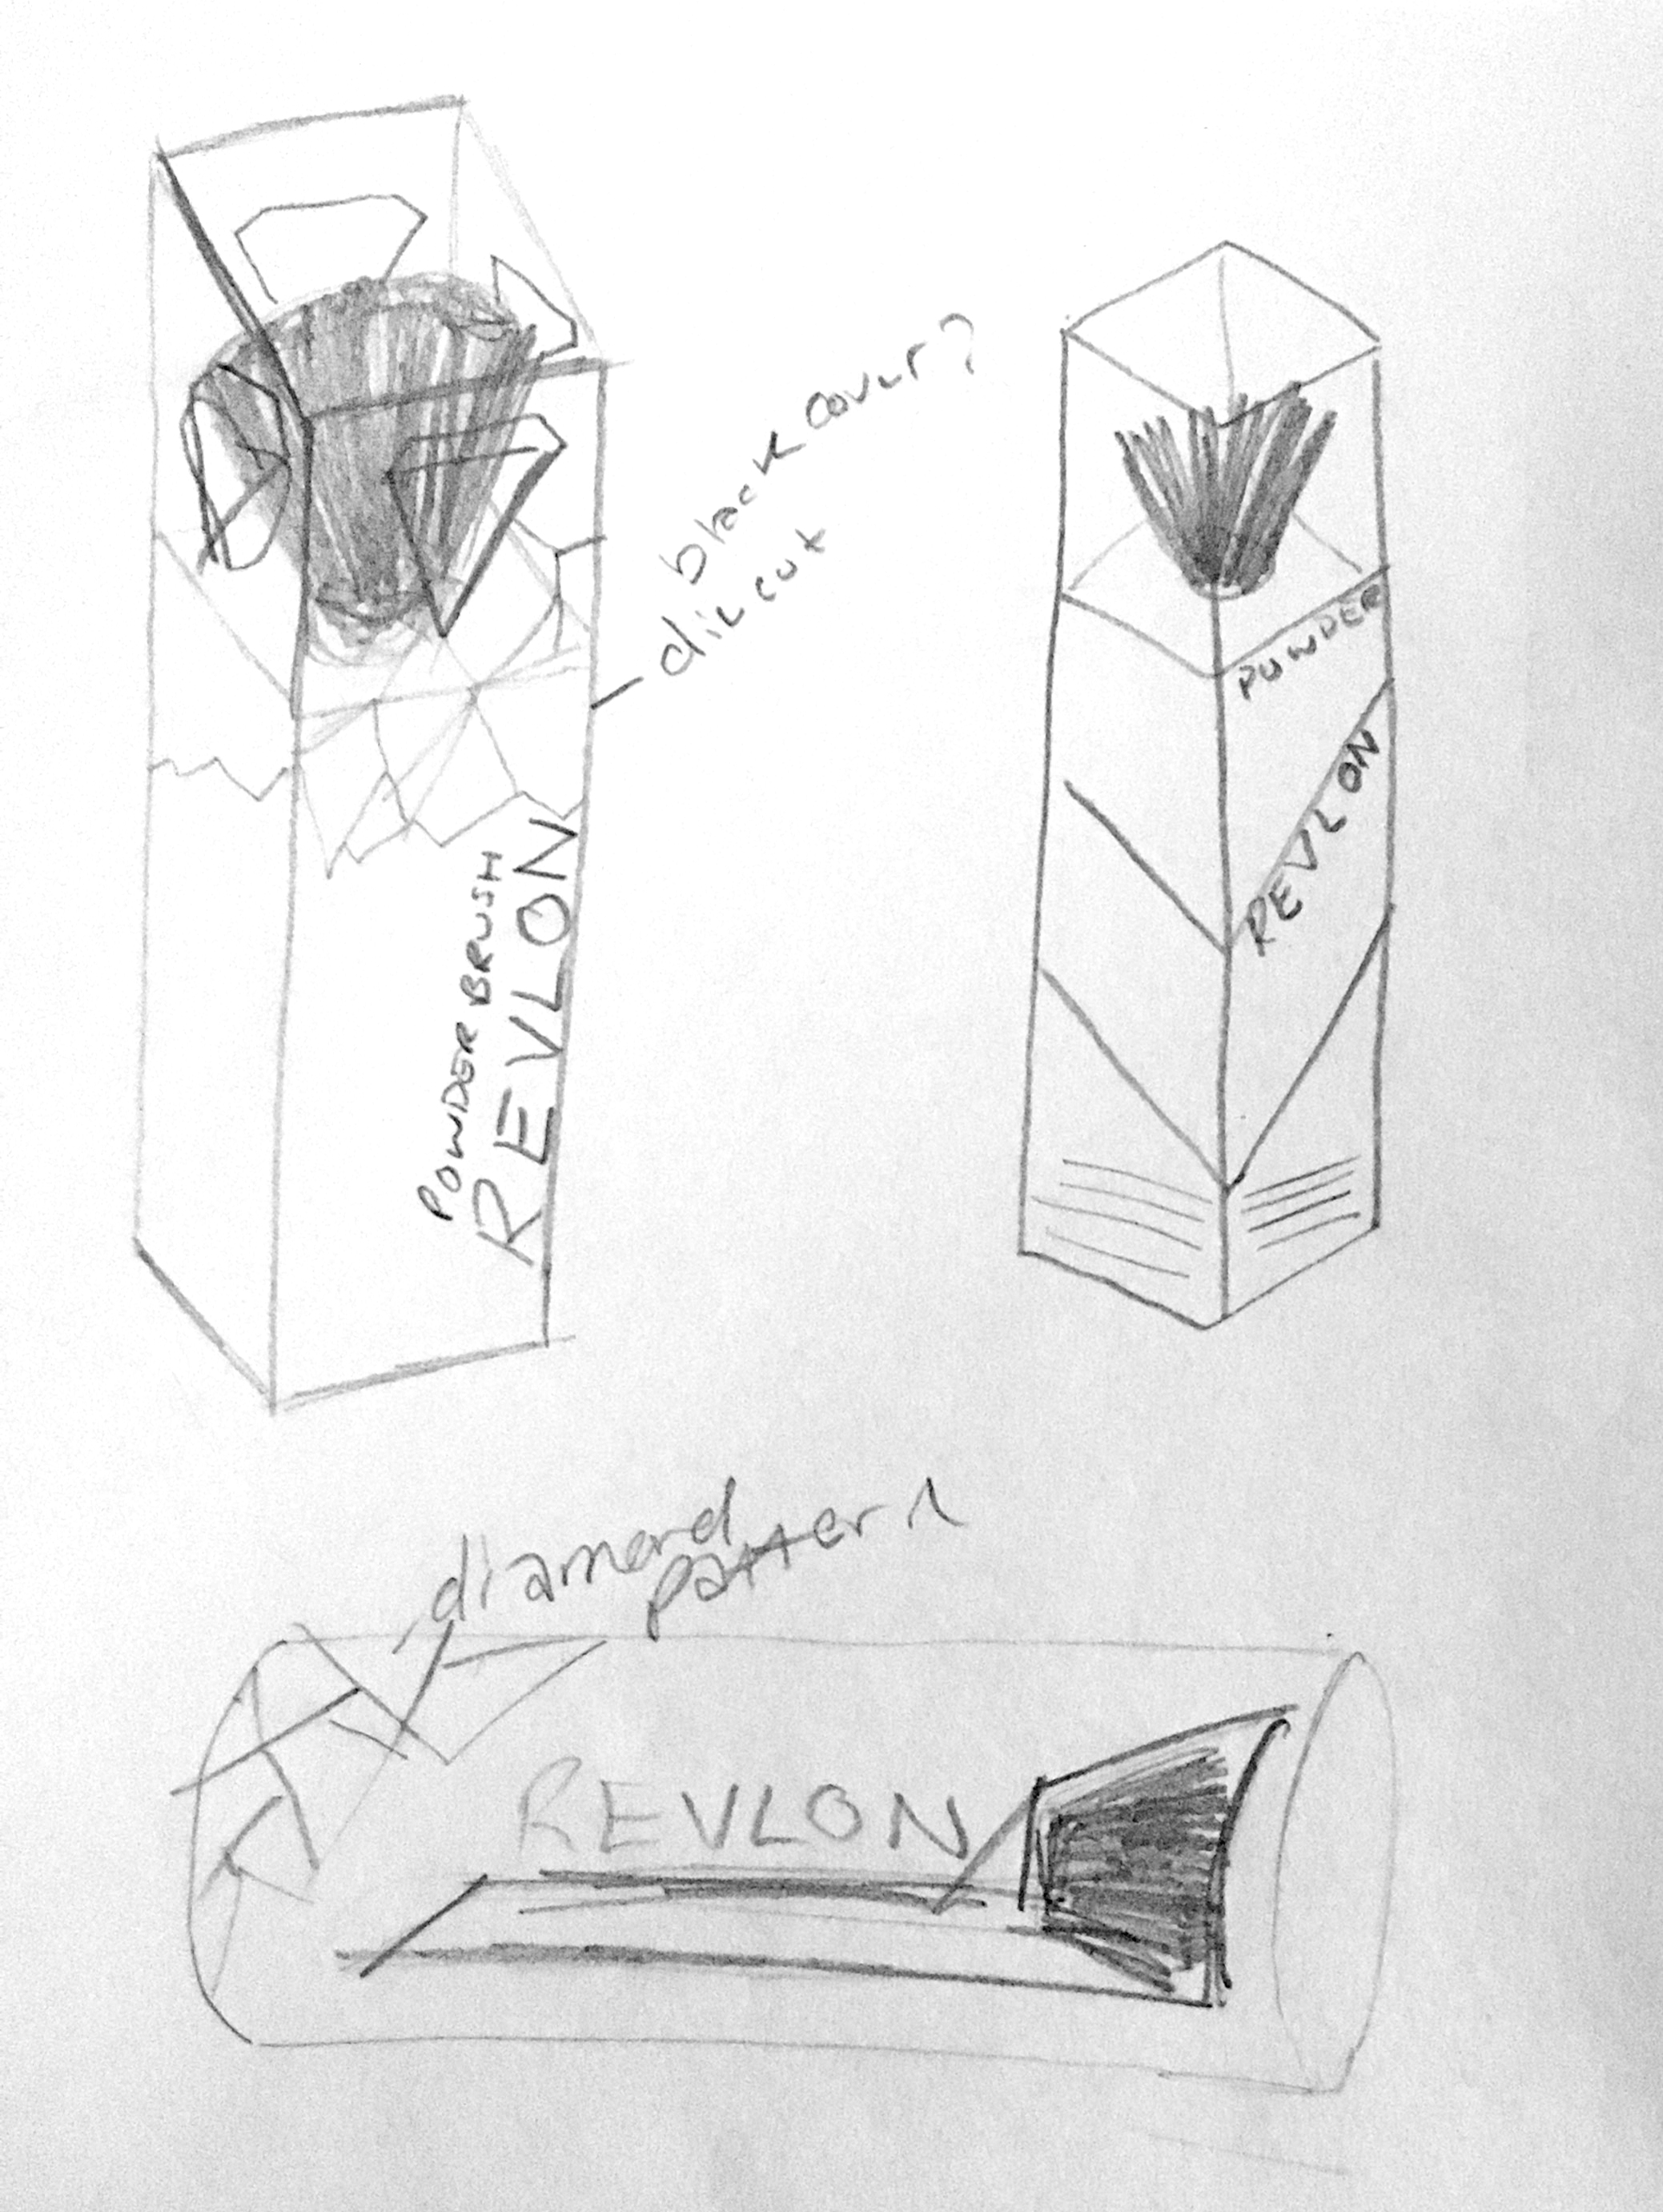 black cover?
die cut
POWDER BRUSH
REVLON
POWDER
REVLON
diamond
pattern
REVLON